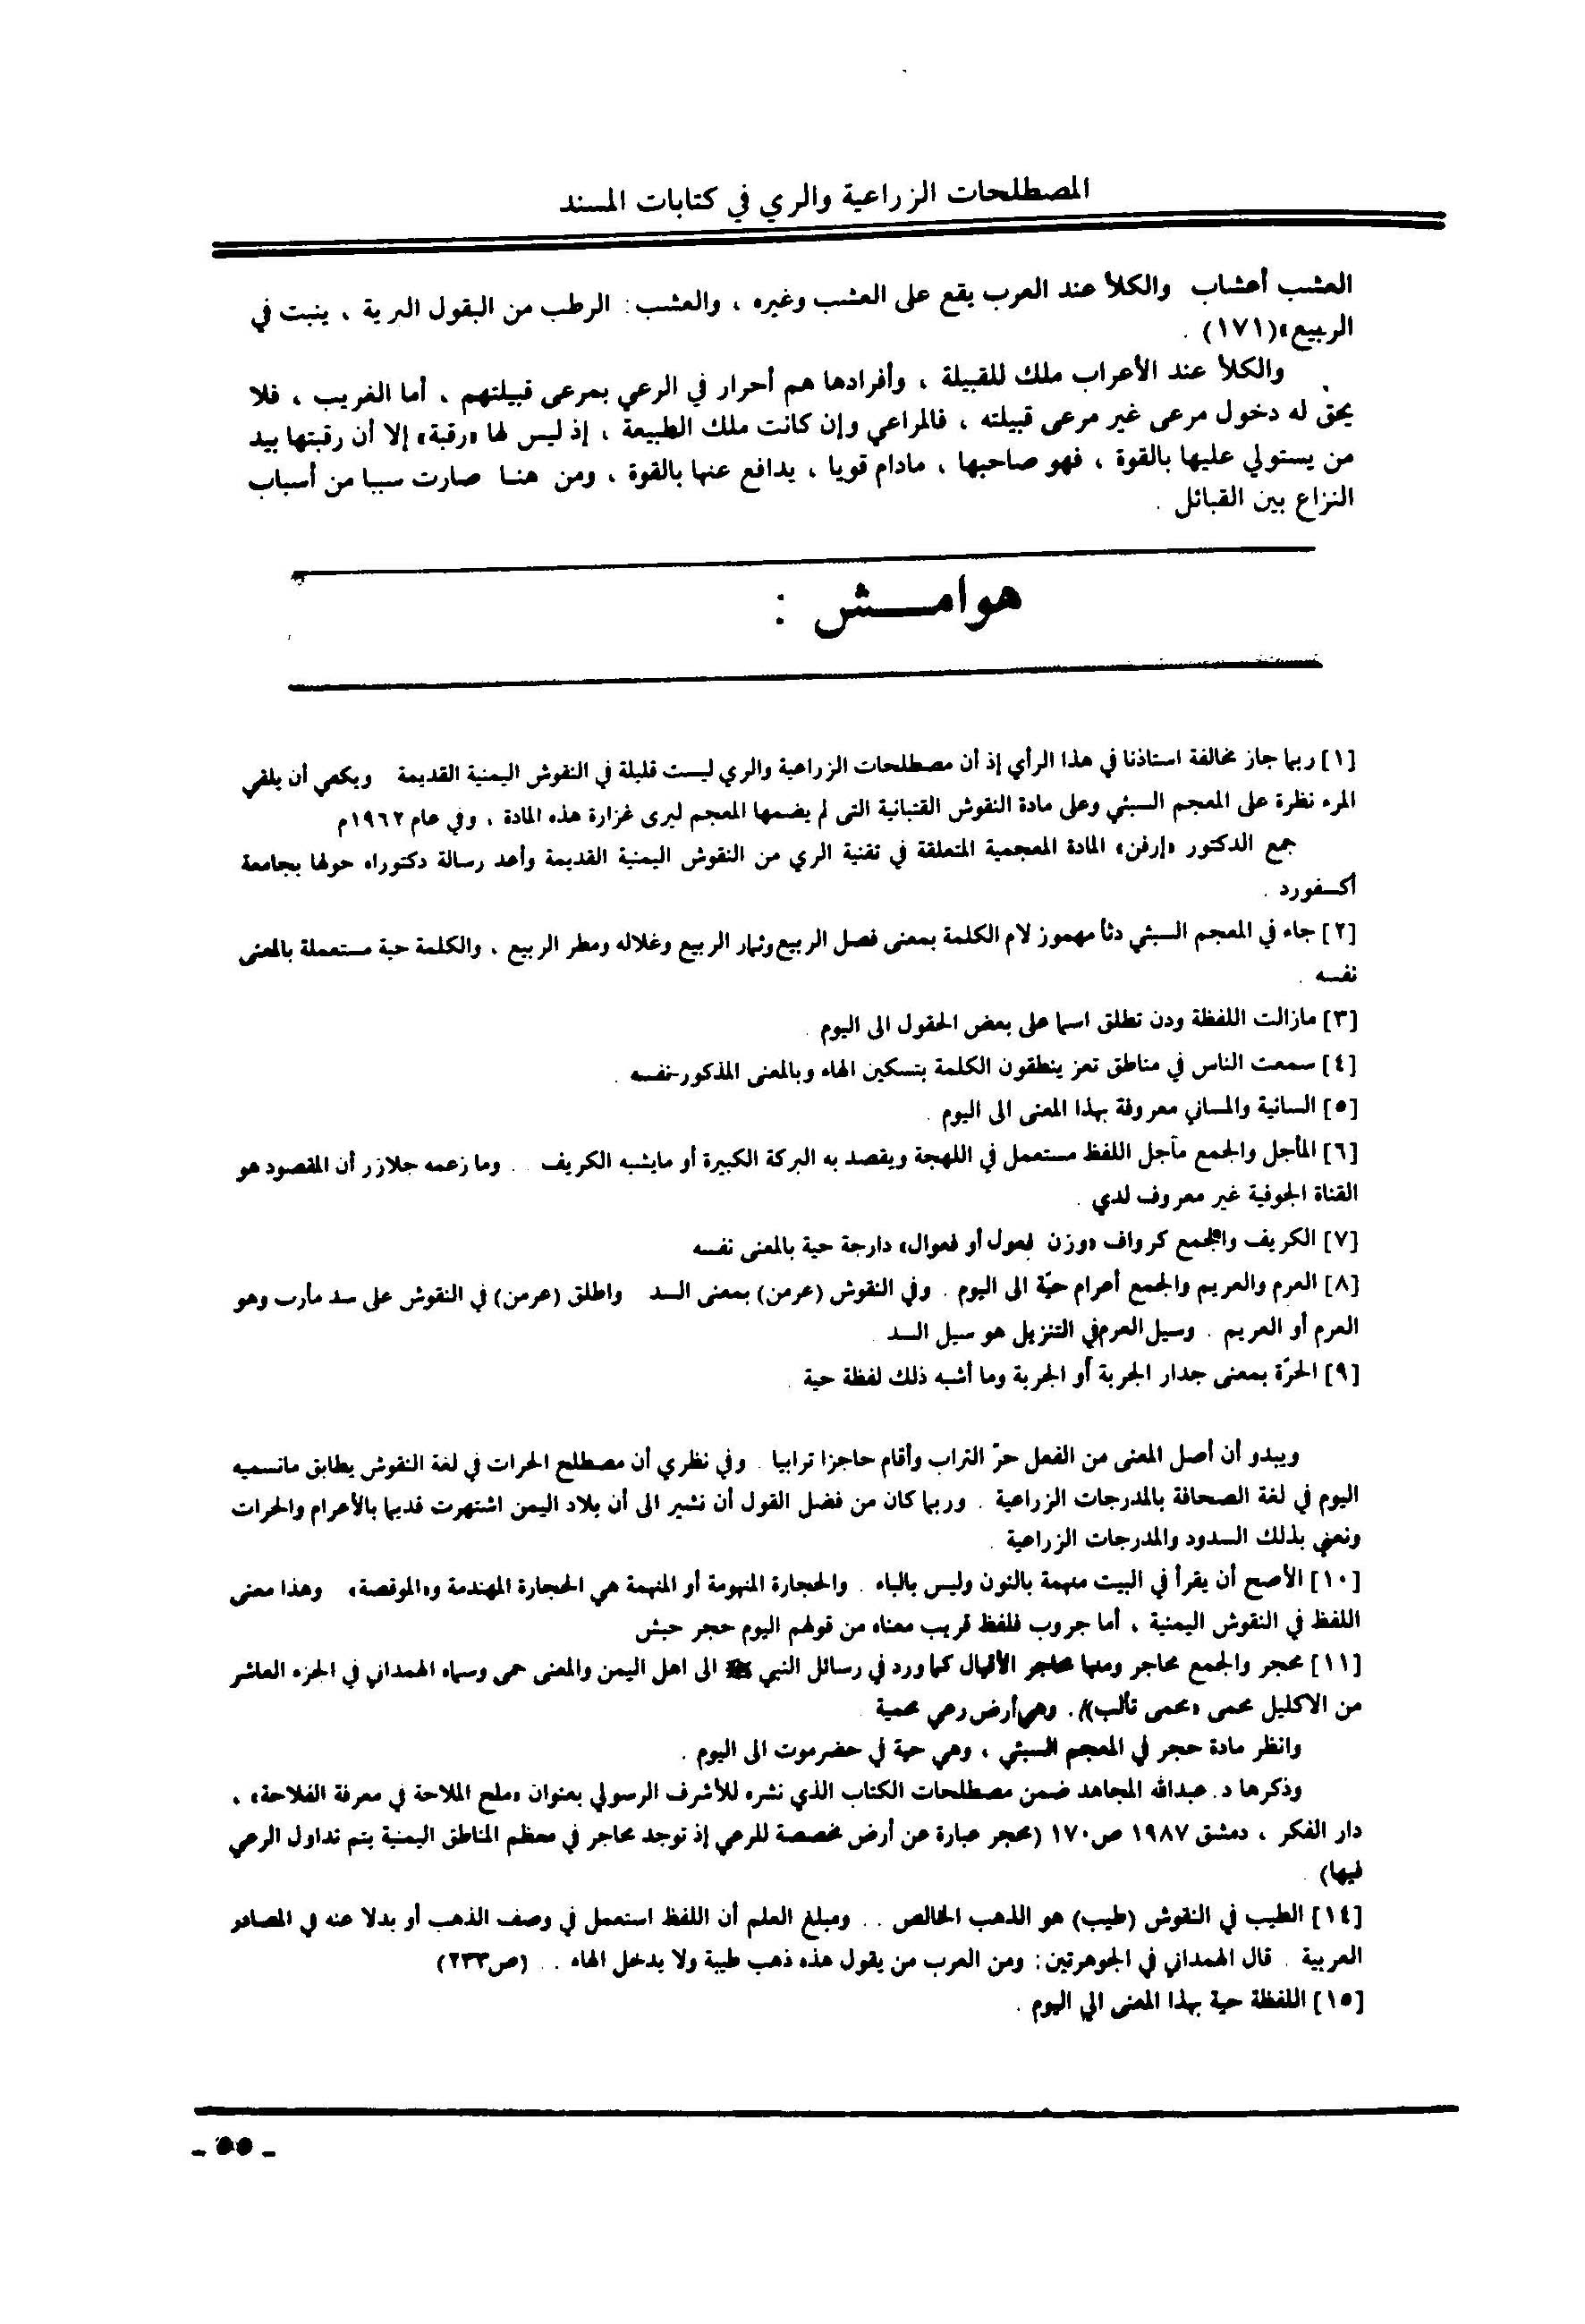 المصطلحات الزراعية والري في كتابات المسند
العشب أعشاب والكلأ عند العرب يقع على العشب وغيره ، والعشب : الرطب من البقول البرية ، ينبت في
الربيع»(١٧١) .
والكلأ عند الأعراب ملك للقبيلة ، وأفرادها هم أحرار في الرعي بمرعى قبيلتهم ، أما الغريب ، فلا
يحق له دخول مرعى غير مرعى قبيلته ، فالمراعي وإن كانت ملك الطبيعة ، إذ ليس لها «رقبة» إلا أن رقبتها بيد
من يستولي عليها بالقوة ، فهو صاحبها ، مادام قويا ، يدافع عنها بالقوة ، ومن هنا صارت سببا من أسباب
النزاع بين القبائل .
هوامـــش :
[١] ربما جاز مخالفة استاذنا في هذا الرأي إذ أن مصطلحات الزراعية والري ليست قليلة في النقوش اليمنية القديمة ويكفي أن يلقي
المرء نظرة على المعجم السبئي وعلى مادة النقوش القتبانية التى لم يضمها المعجم ليرى غزارة هذه المادة ، وفي عام ١٩٦٢م
جمع الدكتور «إرفن» المادة المعجمية المتعلقة في تقنية الري من النقوش اليمنية القديمة وأعد رسالة دكتوراه حولها بجامعة
أكسفورد .
[٢] جاء في المعجم السبئي دثأ مهموز لام الكلمة بمعنى فصل الربيع وثمار الربيع وغلاله ومطر الربيع ، والكلمة حية مستعملة بالمعنى
نفسه .
[٣] مازالت اللفظة ودن تطلق اسما على بعض الحقول الى اليوم .
[٤] سمعت الناس في مناطق تعز ينطقون الكلمة بتسكين الهاء وبالمعنى المذكور نفسه .
[٥] السانية والمساني معروفة بهذا المعنى الى اليوم .
[٦] المأجل والجمع مآجل اللفظ مستعمل في اللهجة ويقصد به البركة الكبيرة أو مايشبه الكريف . . وما زعمه جلازر أن المقصود هو
القناة الجوفية غير معروف لدي .
[٧] الكريف والجمع كرواف «وزن فعول أو فعوال» دارجة حية بالمعنى نفسه
[٨] العرم والعريم والجمع أعرام حيّة الى اليوم . وفي النقوش (عرمن) بمعنى السد واطلق (عرمن) في النقوش على سد مأرب وهو
العرم أو العريم . وسيل العرم في التنزيل هو سيل السد .
[٩] الحرّة بمعنى جدار الجربة أو الجربة وما أشبه ذلك لفظة حية .
ويبدو أن أصل المعنى من الفعل حرّ التراب وأقام حاجزا ترابيا . وفي نظري أن مصطلح الحرات في لغة النقوش يطابق مانسميه
اليوم في لغة الصحافة بالمدرجات الزراعية . وربما كان من فضل القول أن نشير الى أن بلاد اليمن اشتهرت قديما بالأعرام والحرات
ونعني بذلك السدود والمدرجات الزراعية .
[١٠] الأصح أن يقرأ في البيت منهمة بالنون وليس بالباء . والحجارة المنهومة أو المنهمة هي الحجارة المهندمة و«الموقصة» وهذا معنى
اللفظ في النقوش اليمنية ، أما جروب فلفظ قريب معناه من قولهم اليوم حجر حبش
[١١] محجر والجمع محاجر ومنها محاجر الأقيال كما ورد في رسائل النبي ﷺ الى اهل اليمن والمعنى حمى وسماه الهمداني في الجزء العاشر
من الاكليل محمى «محمى تألب» . وهي أرض رعي محمية .
وانظر مادة حجر في المعجم السبئي ، وهي حية في حضرموت الى اليوم .
وذكرها د. عبدالله المجاهد ضمن مصطلحات الكتاب الذي نشره للأشرف الرسولي بعنوان «ملح الملاحة في معرفة الفلاحة» ،
دار الفكر ، دمشق ١٩٨٧ ص١٧٠ (محجر عبارة عن أرض مخصصة للرعي إذ توجد محاجر في معظم المناطق اليمنية يتم تداول الرعي
فيها) .
[١٤] الطيب في النقوش (طيب) هو الذهب الخالص . . ومبلغ العلم أن اللفظ استعمل في وصف الذهب أو بدلا عنه في المصادر
العربية . قال الهمداني في الجوهرتين: ومن العرب من يقول هذه ذهب طيبة ولا يدخل الهاء . . (ص٢٣٣)
[١٥] اللفظة حية بهذا المعنى الي اليوم .
_ ٥٥ _